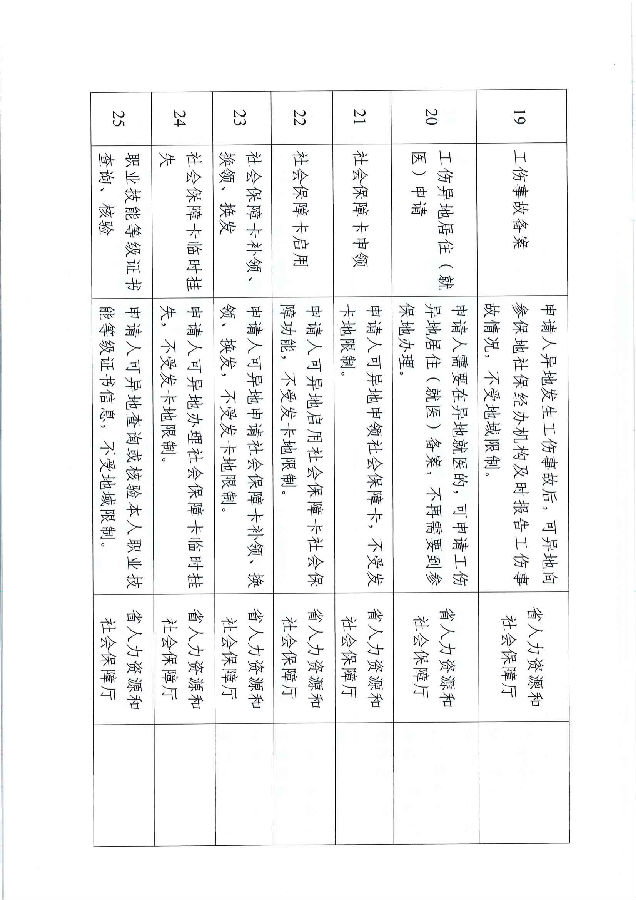 19
工伤事故备案
申请人异地发生工伤事故后，可异地向
参保地社保经办机构及时报告工伤事
故情况，不受地域限制。
省人力资源和
社会保障厅
20
工伤异地居住（就
医）申请
申请人需要在异地就医的，可申请工伤
异地居住（就医）备案，不再需要到参
保地办理。
省人力资源和
社会保障厅
21
社会保障卡申领
申请人可异地申领社会保障卡，不受发
卡地限制。
省人力资源和
社会保障厅
22
社会保障卡启用
申请人可异地启用社会保障卡社会保
障功能，不受发卡地限制。
省人力资源和
社会保障厅
23
社会保障卡补领、
换领、换发
申请人可异地申请社会保障卡补领、换
领、换发，不受发卡地限制。
省人力资源和
社会保障厅
24
社会保障卡临时挂
失
申请人可异地办理社会保障卡临时挂
失，不受发卡地限制。
省人力资源和
社会保障厅
25
职业技能等级证书
查询、核验
申请人可异地查询或核验本人职业技
能等级证书信息，不受地域限制。
省人力资源和
社会保障厅